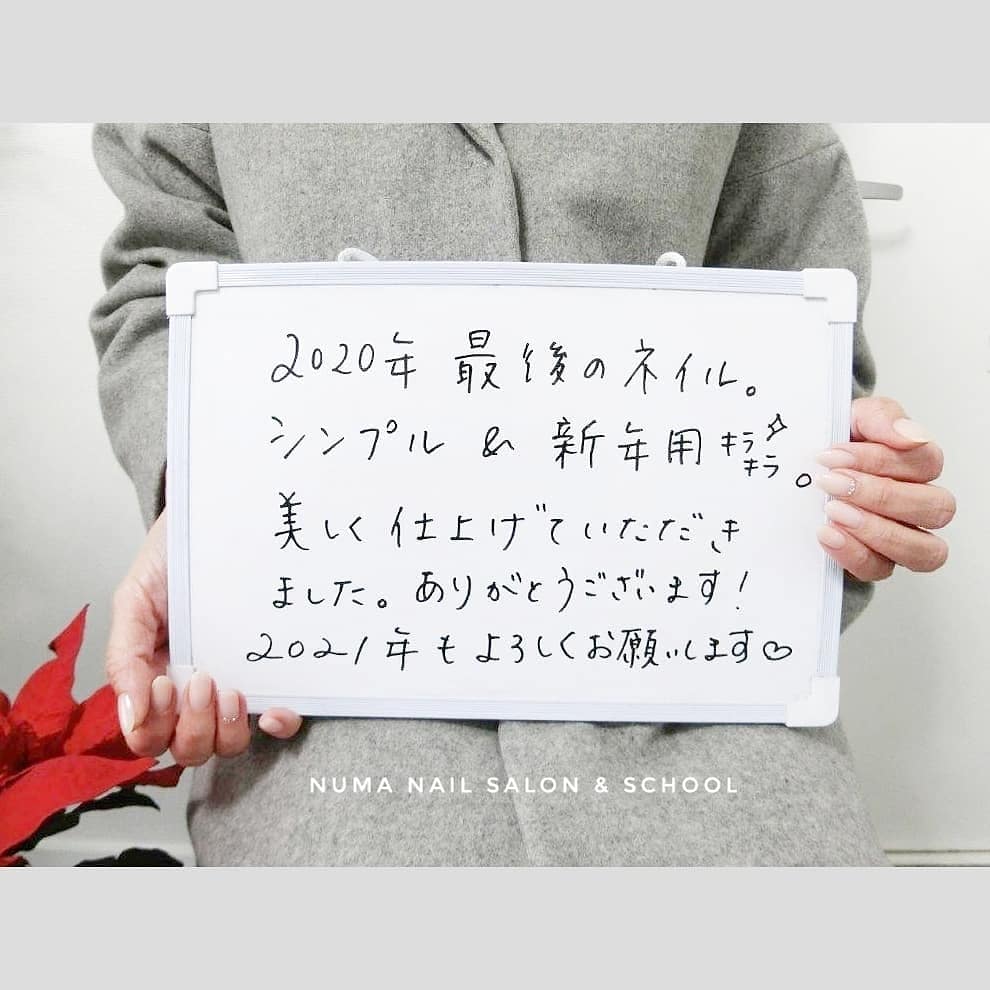 2020年 最後のネイル。
シンプル & 新年用キラキラ✧。
美しく仕上げていただき
ました。ありがとうございます!
2021年もよろしくお願いします♡
NUMA NAIL SALON & SCHOOL